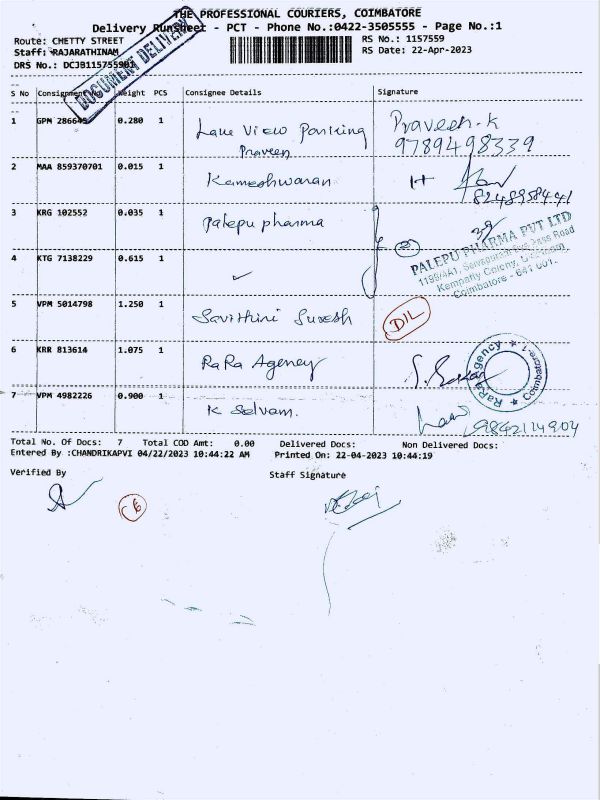 THE PROFESSIONAL COURIERS, COIMBATORE
Delivery RunSheet - PCT - Phone No.:0422-3505555 - Page No.:1
Route: CHETTY STREET
RS No.: 1157559
Staff: RAJARATHINAM
RS Date: 22-Apr-2023
DRS No.: DCJB115755901
DOCUMENT DELIVERY
S No Consignment No Weight PCS Consignee Details Signature
1 GPM 286645 0.280 1 Praveen
Praveen.K
9789498339
2 MAA 859370701 0.015 1 Kameshwaran
8248958441
3 KRG 102552 0.035 1 Palepu pharma
PALEPU PHARMA PVT LTD
Coimbatore - 641 001.
4 KTG 7138229 0.615 1
5 VPM 5014798 1.250 1 Savithiri Suresh
6 KRR 813614 1.075 1 RaRa Agency
RaRa Agency Coimbatore-1
7 VPM 4982226 0.900 1 K Selvam.
9842124904
Total No. Of Docs: 7 Total COD Amt: 0.00 Delivered Docs: Non Delivered Docs:
Entered By :CHANDRIKAPVI 04/22/2023 10:44:22 AM Printed On: 22-04-2023 10:44:19
Verified By Staff Signature